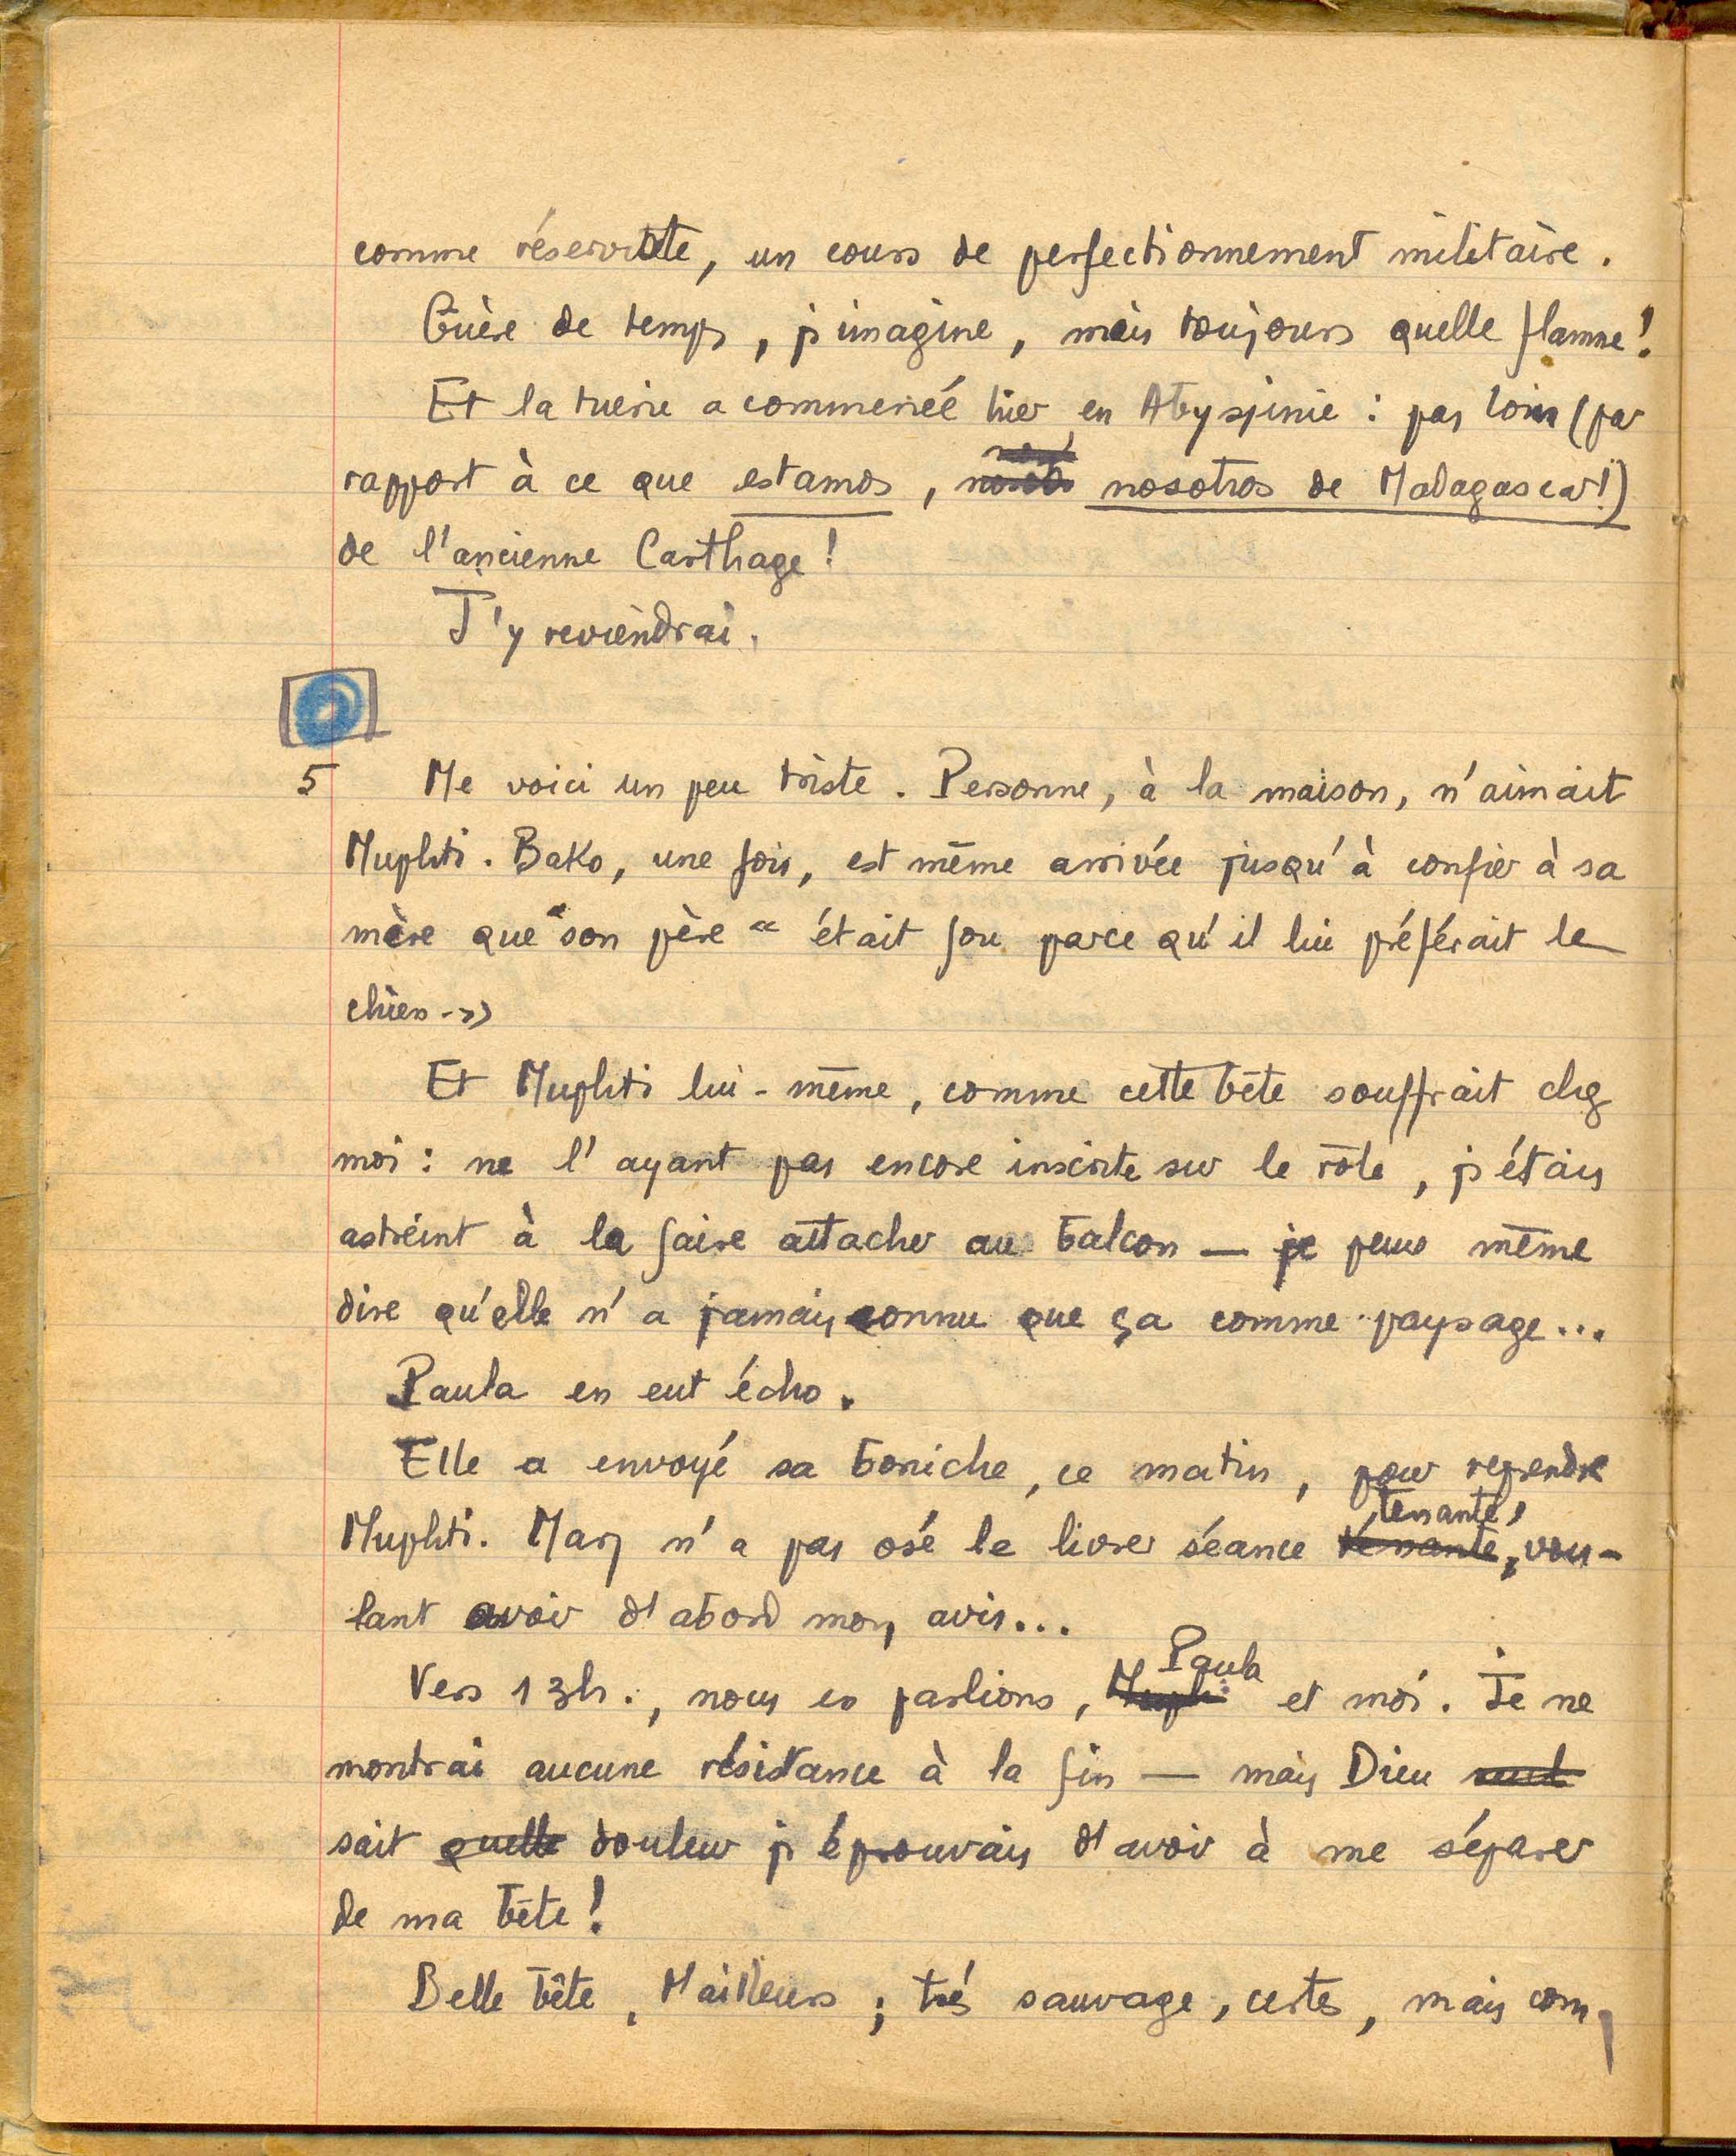 comme réserviste, un cours de perfectionnement militaire.
Guère de temps, j'imagine, mais toujours quelle flamme !
Et la tuerie a commencé hier en Abyssinie : pas loin (par
rapport à ce que estamos, nosotros de Madagascar !)
de l'ancienne Carthage !
J'y reviendrai.
5 Me voici un peu triste. Personne, à la maison, n'aimait
Muphti. Bako, une fois, est même arrivée jusqu'à confier à sa
mère que "son père “ était fou parce qu'il lui préférait le
chien.»
Et Muphti lui-même, comme cette bête souffrait chez
moi : ne l'ayant pas encore inscrite sur le rôle, j'étais
astreint à la faire attacher au balcon — je peux même
dire qu'elle n'a jamais connu que ça comme paysage...
Paula en eut écho.
Elle a envoyé sa boniche, ce matin, pour reprendre
Muphti. Mary n'a pas osé le livrer séance tenante, vou-
lant avoir d'abord mon avis...
Vers 13h., nous en parlions, Paula et moi. Je ne
montrai aucune résistance à la fin — mais Dieu
sait quelle douleur j'éprouvais d'avoir à me séparer
de ma bête !
Belle bête, d'ailleurs ; très sauvage, certes, mais com